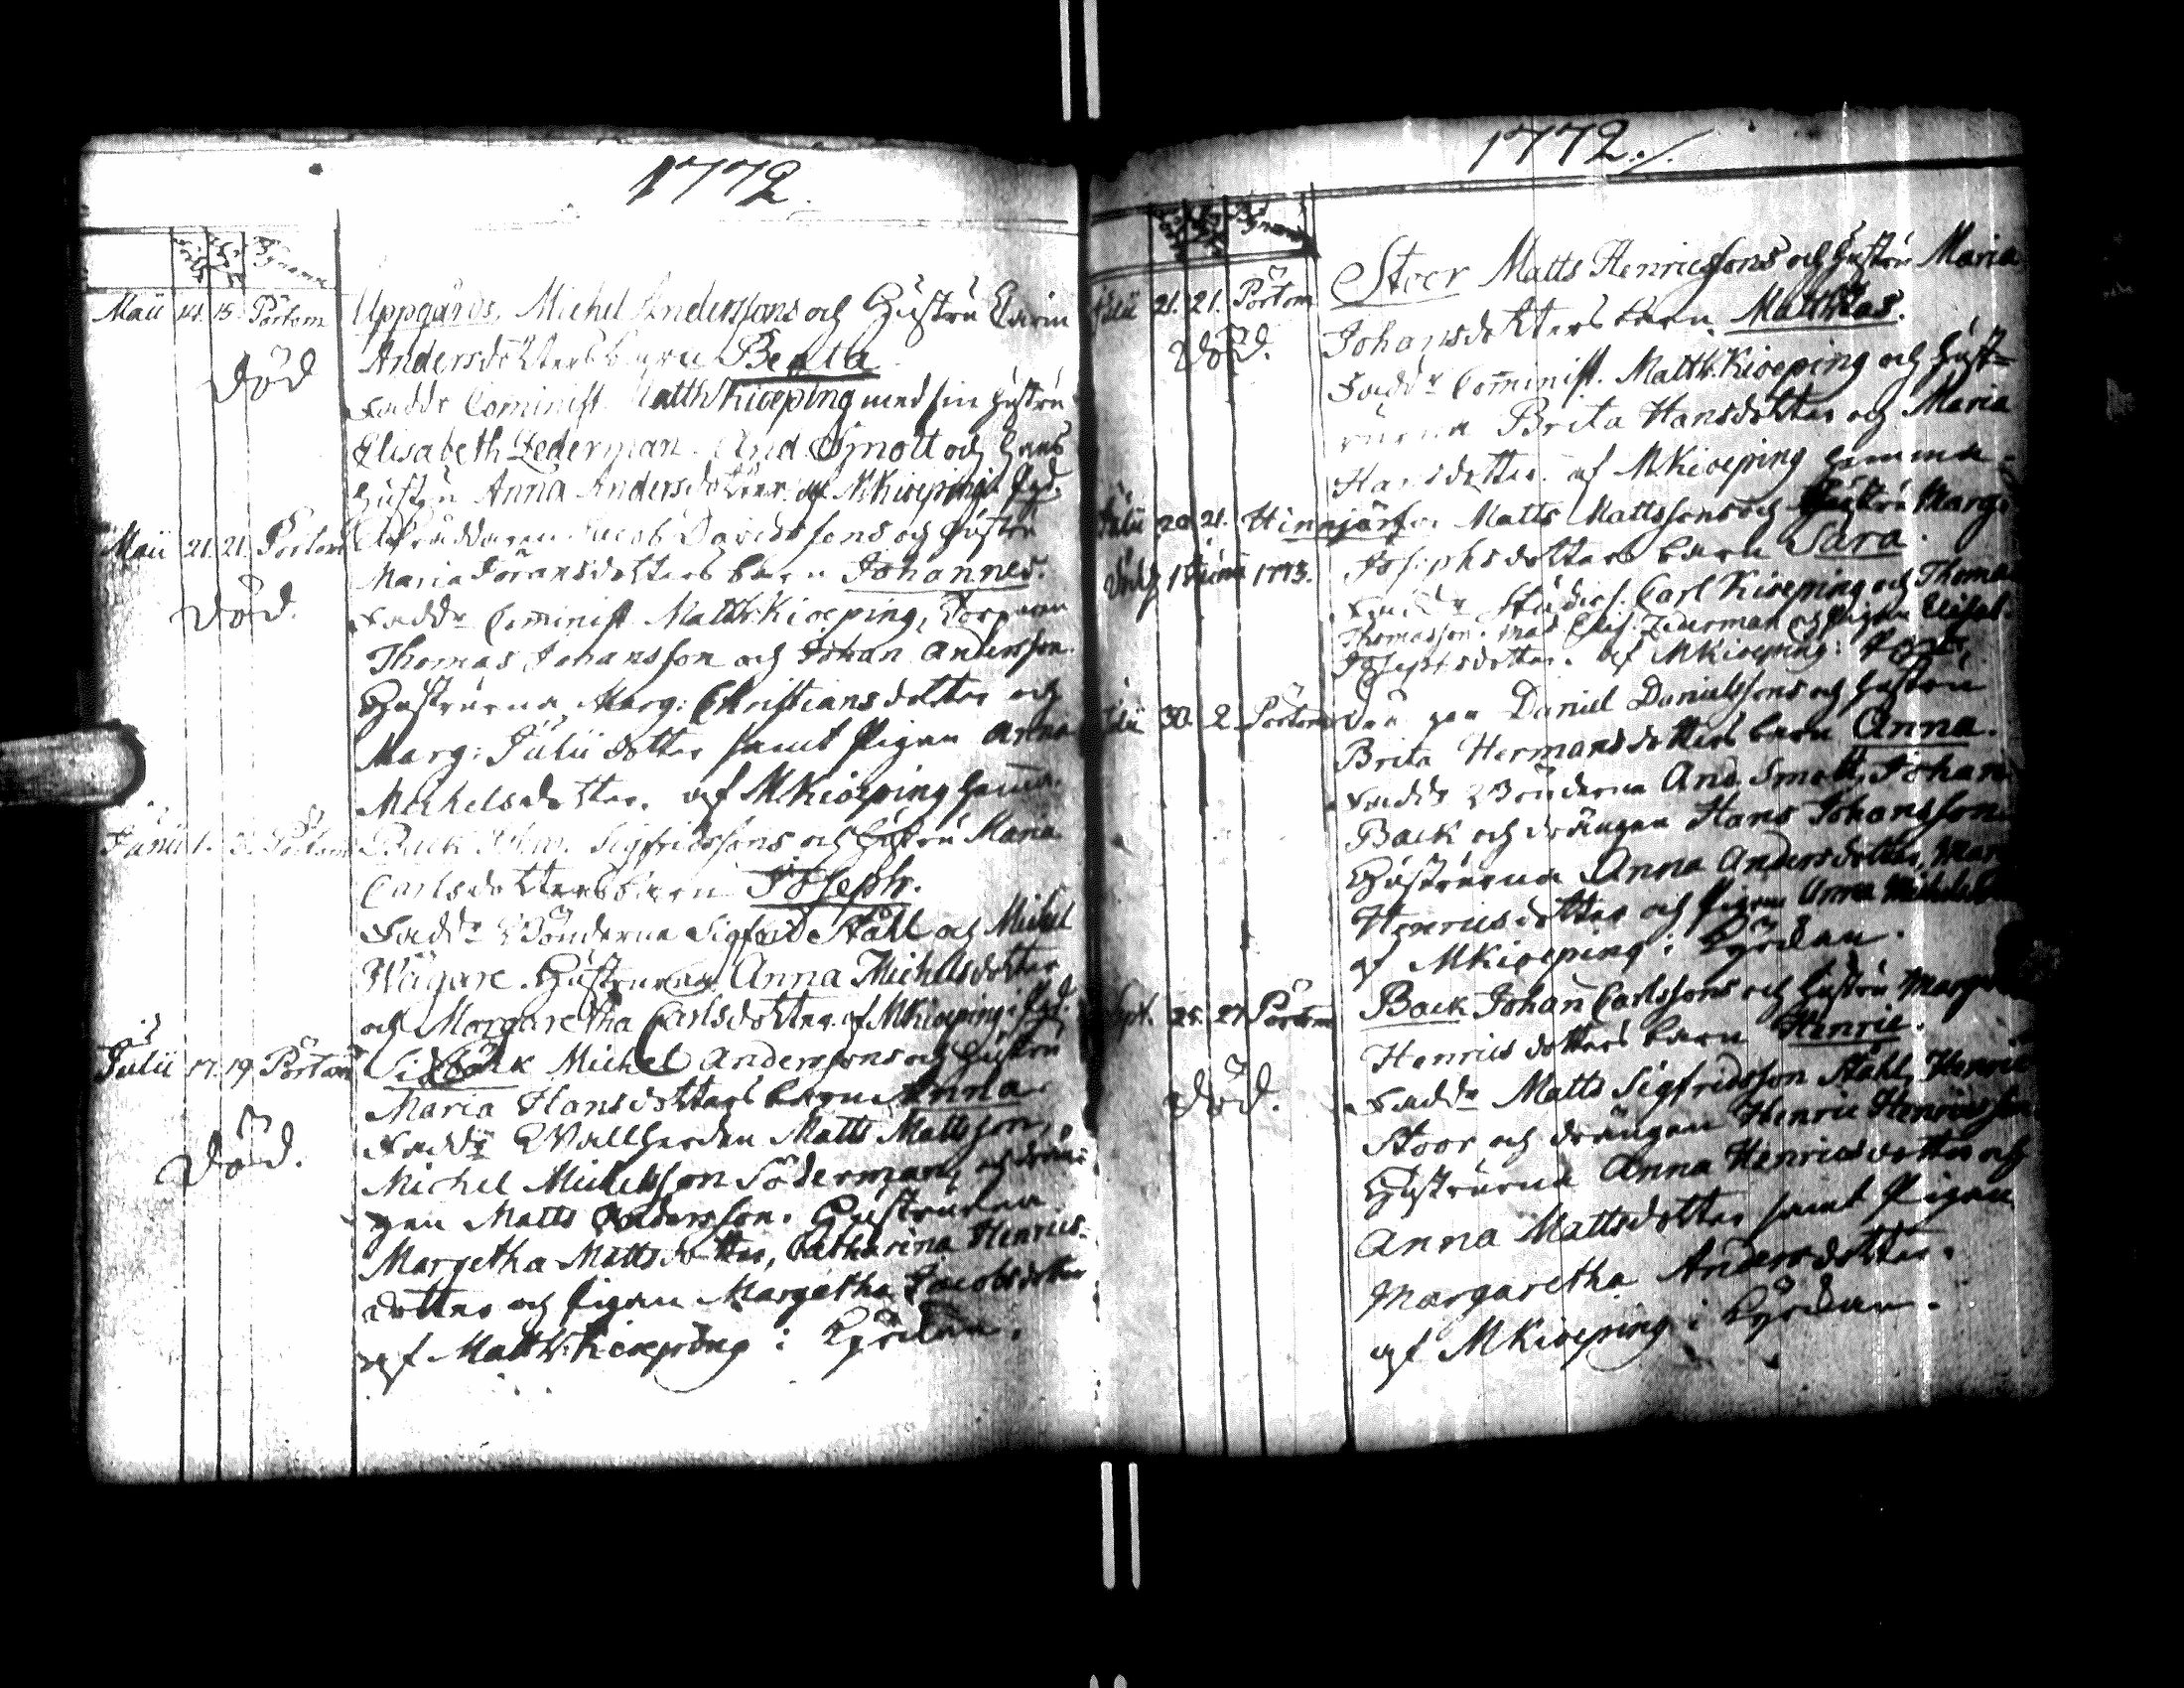 1772.
Maii 14. 15. Pörtom Uppgårds, Michel Anderssons och Hustru Carin
Död Andersdotters barn Beata
Fadd: Comminist. Matth: Kiöeping med sin hustru
Elisabeth Zederman. And. Smott och hans
Hustru Anna Andersdotter af MKiöeping
Maii 21. 21. Pörtom Jacob Davidssons och Hustru
Maria Göransdotters barn Johannes.
Död. Fadd: Comminist Matth: Kiöeping,
Thomas Johansson och Johan Andersson.
Hustruerna Marg: Christiansdotter och
Marg: Juliidotter samt Pigan Anna
Michelsdotter. af MKiöeping hemma.
Junii 1. Pörtom Back Sigfridssons och Hustru Maria
Carlsdotters barn Joseph.
Fadd: Bönderne Sigfrid Ståhl och Michel
Wägare. Hustruerna Anna Michelsdotter
och Margaretha Carlsdotter. af MKiöeping
Julii 17. 19. Pörtom Sidbäck Michel Anderssons och Hustru
Maria Hansdotters barn Anna.
Död. Fadd: Wallherden Matts Mattsson,
Michel Michelsson Söderman, och drän-
gen Matts Andersson. Hustruerna
Margetha Mattsdotter, Catharina Henrics-
dotter och Pigan Margetha Jacobsdotter
af Matth: Kiöeping i Kyrckan.
1772./.
Julii 21. 21. Pörtom Stoor Matts Henricssons och Hustru Maria
Död. Johansdotters barn Matthias.
Fadd: Comminist. Matth: Kiöeping och Hust=
ruerna Brita Hansdotter och Maria
Hansdotter af MKiöeping hemma
Julii 20. 21. Hinnjärf. Matts Mattssons och Hustru Marg:
Död 1 Junii 1773. Josephsdotters barn Sara.
Fadd: Studios. Carl Kiöeping och Thomas
Thomasson. Mad. Elis. Zederman och Pigan Elisab.
Josephsdotter. af MKiöeping:
30. 2. Pörtom Daniel Danielssons och Hustru
Brita Hermansdotters barn Anna.
Fadd: Bönderna And. Smått, Johan
Back och drängen Hans Johansson
Hustruerna Anna Andersdotter, Marg
Henricsdotter och Pigan Anna Michelsd
af MKiöeping i Kyrckan.
Sept. 25. 27. Pörtom Back Johan Carlssons och Hustru Marga
Henricsdotters barn Henric.
Död. Fadd: Matts Sigfridsson Ståhl, Henric
Stoor och drängen Henric Henricsson
Hustruerna Anna Henricsdotter och
Anna Mattsdotter samt Pigan
Margaretha Andersdotter.
af MKiöeping i Kyrckan.